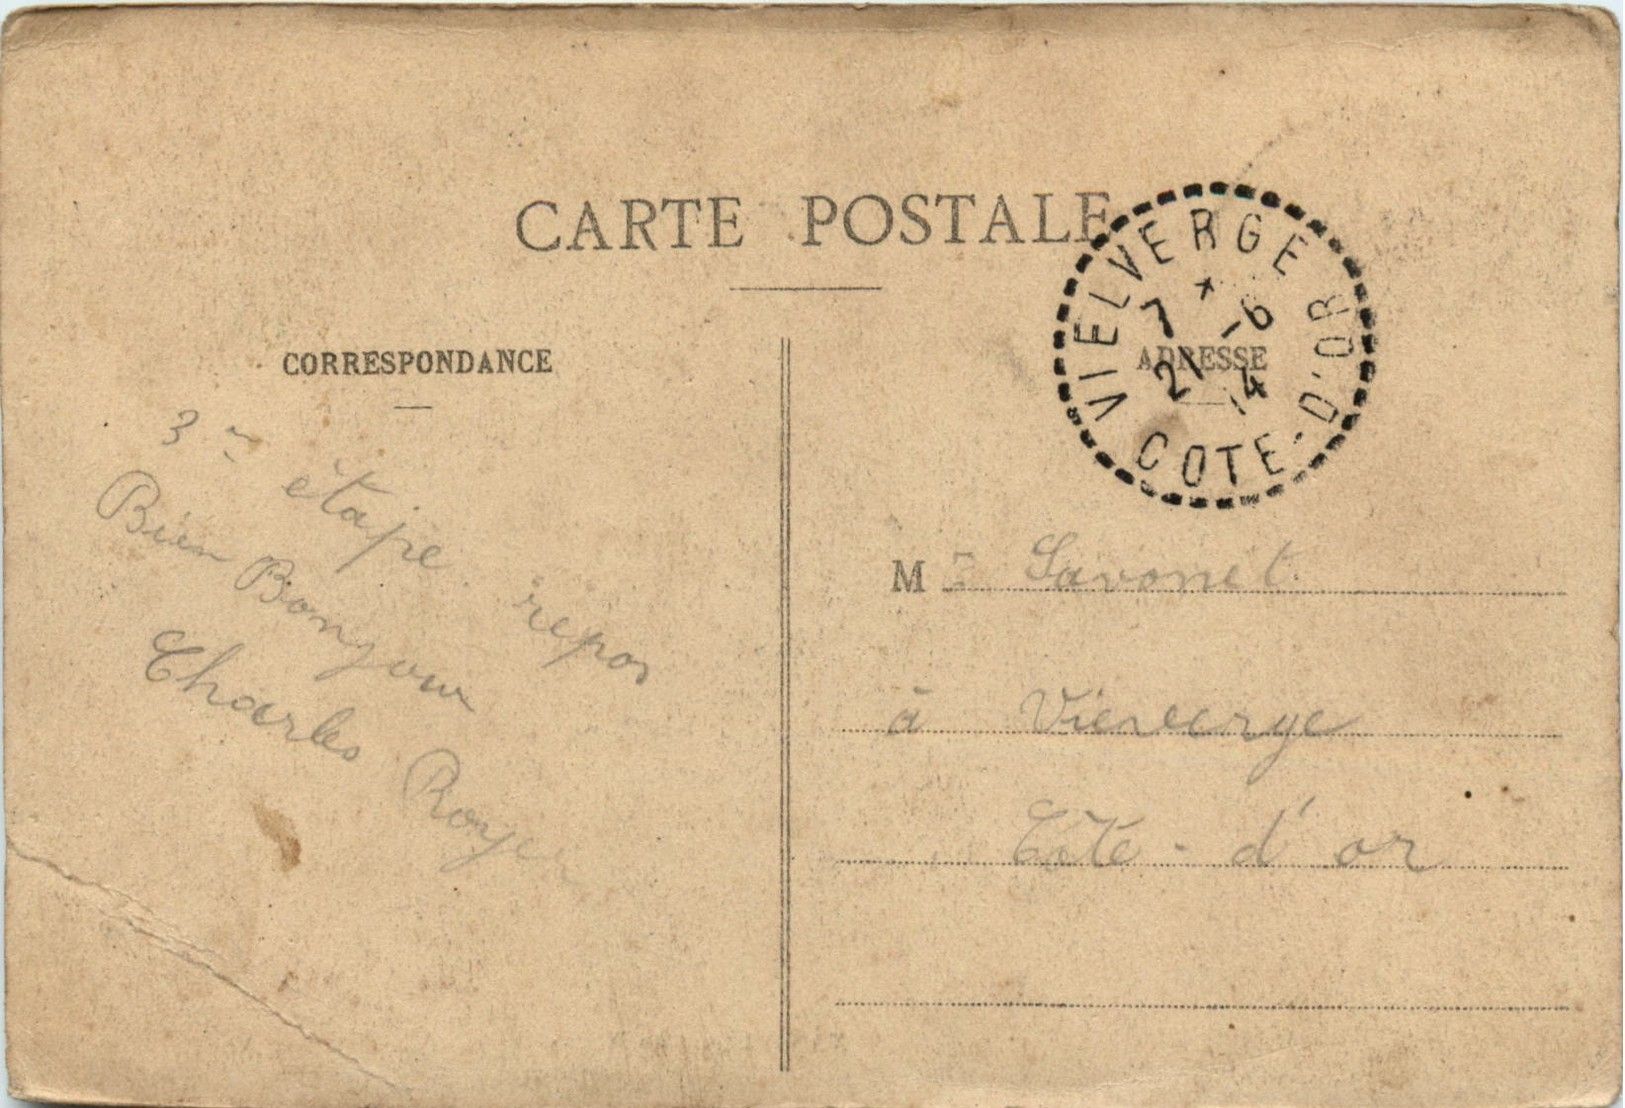 CARTE POSTALE
VIELVERGE
COTE-D'OR
7 * -6
21 14
CORRESPONDANCE
ADRESSE
3me étape repos
Bien Bonjour
Charles Royer
M Savonet
à Vieverge
Côte-d'or